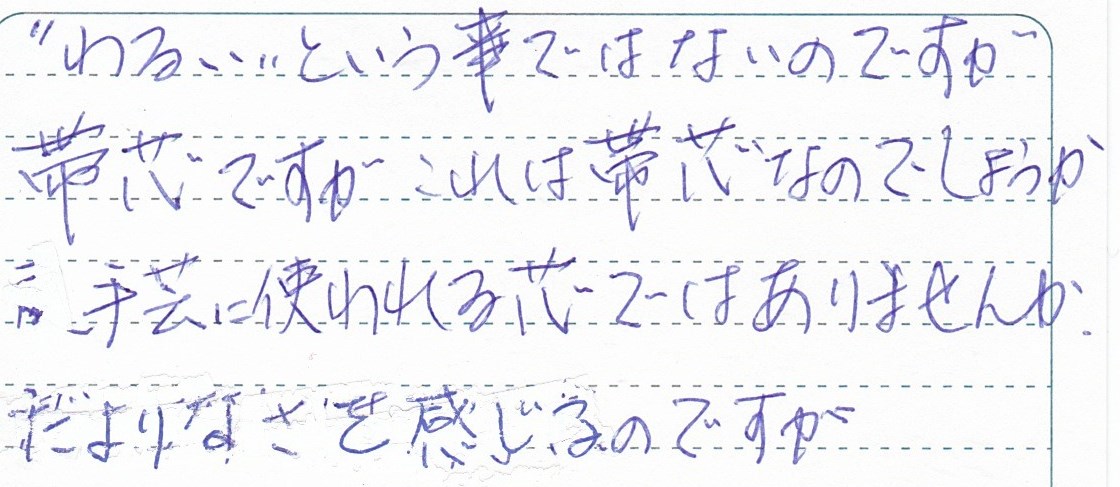 "わるい"という事ではないのですが
帯芯ですがこれは帯芯なのでしょうか
手芸に使われる芯ではありませんか.
たよりなさを感じるのですが